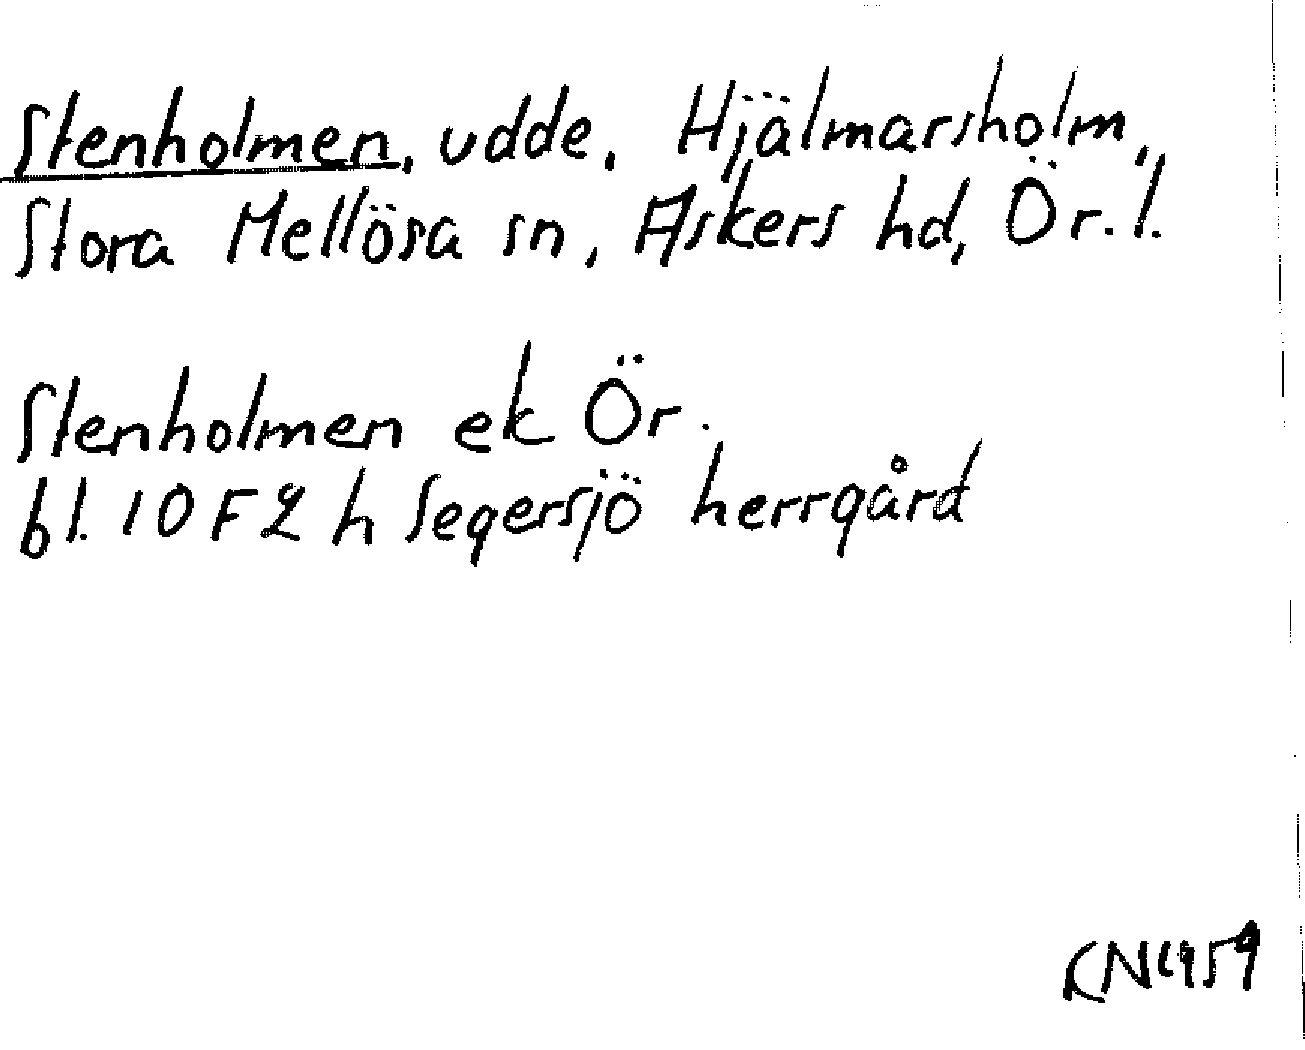 Stenholmen, udde, Hjälmarsholm,
Stora Mellösa sn, Askers hd, Ör. l.
Stenholmen ek Ör.
bl. 10 F 2 h Segersjö herrgård